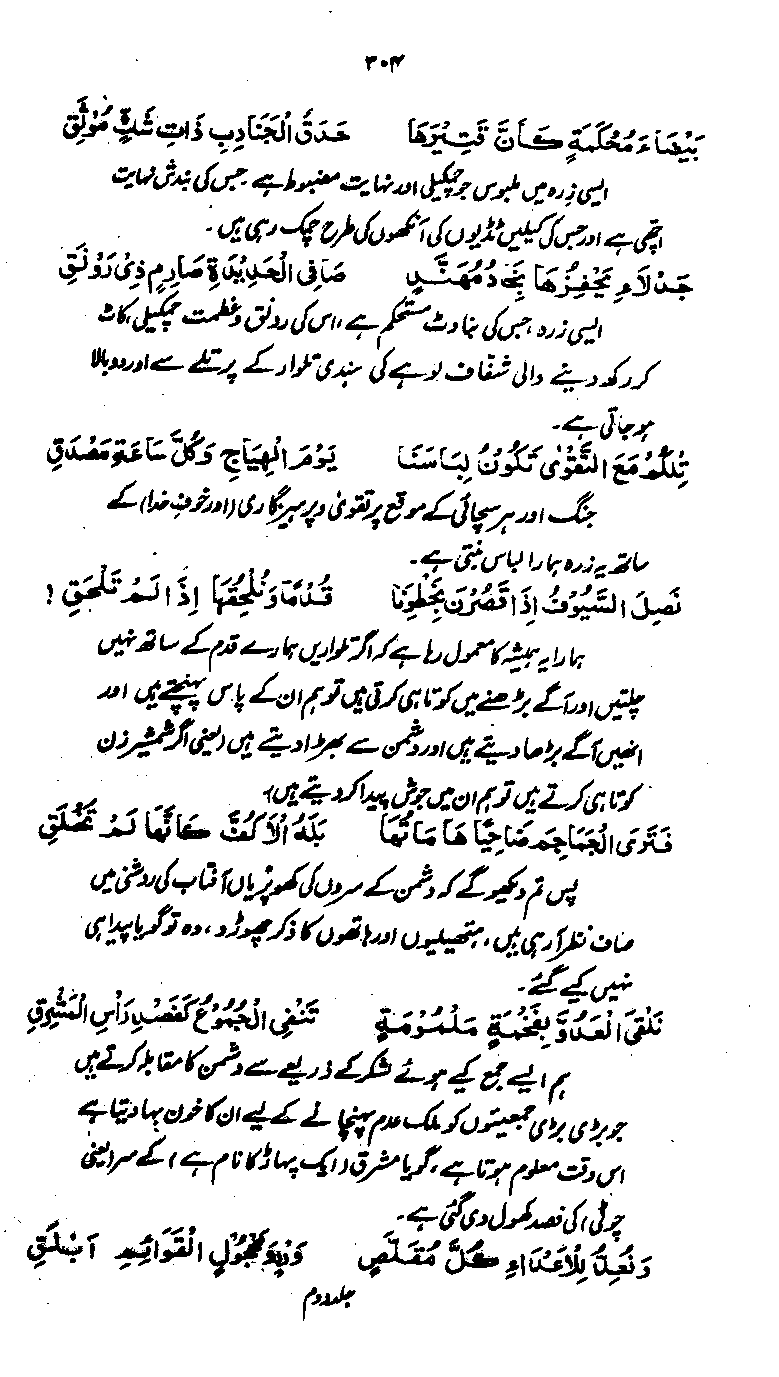 ۳۰۴
بَيْضَاءَ مُحْكَمَةٍ كَأَنَّ قَتِيْرَهَا حَدَقُ الْجَنَادِبِ ذَاتِ شَكٍّ مُوْثَقِ
ایسی زرہ میں ملبوس جو چمکیلی اور نہایت مضبوط ہے جس کی بندش نہایت
اچھی ہے اور جس کی کیلیں ٹڈیوں کی آنکھوں کی طرح چمک رہی ہیں۔
جَدْلَاءِ يَحْفِزُهَا نِجَادُ مُهَنَّدٍ صَافِي الْحَدِيْدَةِ صَارِمٍ ذِيْ رَوْنَقِ
ایسی زرہ جس کی بناوٹ مستحکم ہے، اس کی رونق و عظمت چمکیلی، کاٹ
کر رکھ دینے والی شفاف لوہے کی ہندی تلوار کے پرتلے سے اور دوبالا
ہو جاتی ہے۔
تِلْكُمْ مَعَ التَّقْوٰى تَكُوْنُ لِبَاسَنَا يَوْمَ الْهِيَاجِ وَكُلَّ سَاعَةِ مَصْدَقِ
جنگ اور ہر سچائی کے موقع پر تقویٰ و پرہیزگاری (اور خوفِ خدا) کے
ساتھ یہ زرہ ہمارا لباس بنتی ہے۔
نَصِلُ السُّيُوْفَ إِذَا قَصُرْنَ بِخَطْوِنَا قُدُمًا وَنُلْحِقُهَا إِذَا لَمْ تَلْحَقِ !
ہمارا یہ ہمیشہ کا معمول رہا ہے کہ اگر تلواریں ہمارے قدم کے ساتھ نہیں
چلتیں اور آگے بڑھنے میں کوتاہی کرتی ہیں تو ہم ان کے پاس پہنچتے ہیں اور
انھیں آگے بڑھا دیتے ہیں اور دشمن سے بھڑا دیتے ہیں (یعنی اگر شمشیر زن
کوتاہی کرتے ہیں تو ہم ان میں جوش پیدا کر دیتے ہیں)
فَتَرَى الْجَمَاجِمَ ضَاحِيًا هَامَاتُهَا بَلْهَ الْأَكُفَّ كَأَنَّهَا لَمْ تُخْلَقِ
پس تم دیکھو گے کہ دشمن کے سروں کی کھوپڑیاں آفتاب کی روشنی میں
صاف نظر آ رہی ہیں، ہتھیلیوں اور ہاتھوں کا ذکر چھوڑو، وہ تو گویا پیدا ہی
نہیں کیے گئے۔
نَلْقَى الْعَدُوَّ بِفَخْمَةٍ مَلْمُوْمَةٍ تَنْفِي الْجُمُوْعَ كَفَصْدِ رَأْسِ الْمَشْرِقِ
ہم ایسے جمع کیے ہوئے لشکر کے ذریعے سے دشمن کا مقابلہ کرتے ہیں
جو بڑی بڑی جمعیتوں کو ملک عدم پہنچانے کے لیے ان کا خون بہا دیتا ہے
اس وقت معلوم ہوتا ہے، گویا مشرق (ایک پہاڑ کا نام ہے) کے سر (یعنی
چوٹی) کی فصد کھول دی گئی ہے۔
وَنُعِدُّ لِلْأَعْدَاءِ كُلَّ مُقَلَّصٍ وَرْدٍ وَمَحْجُوْلِ الْقَوَائِمِ أَبْلَقِ
جلد دوم